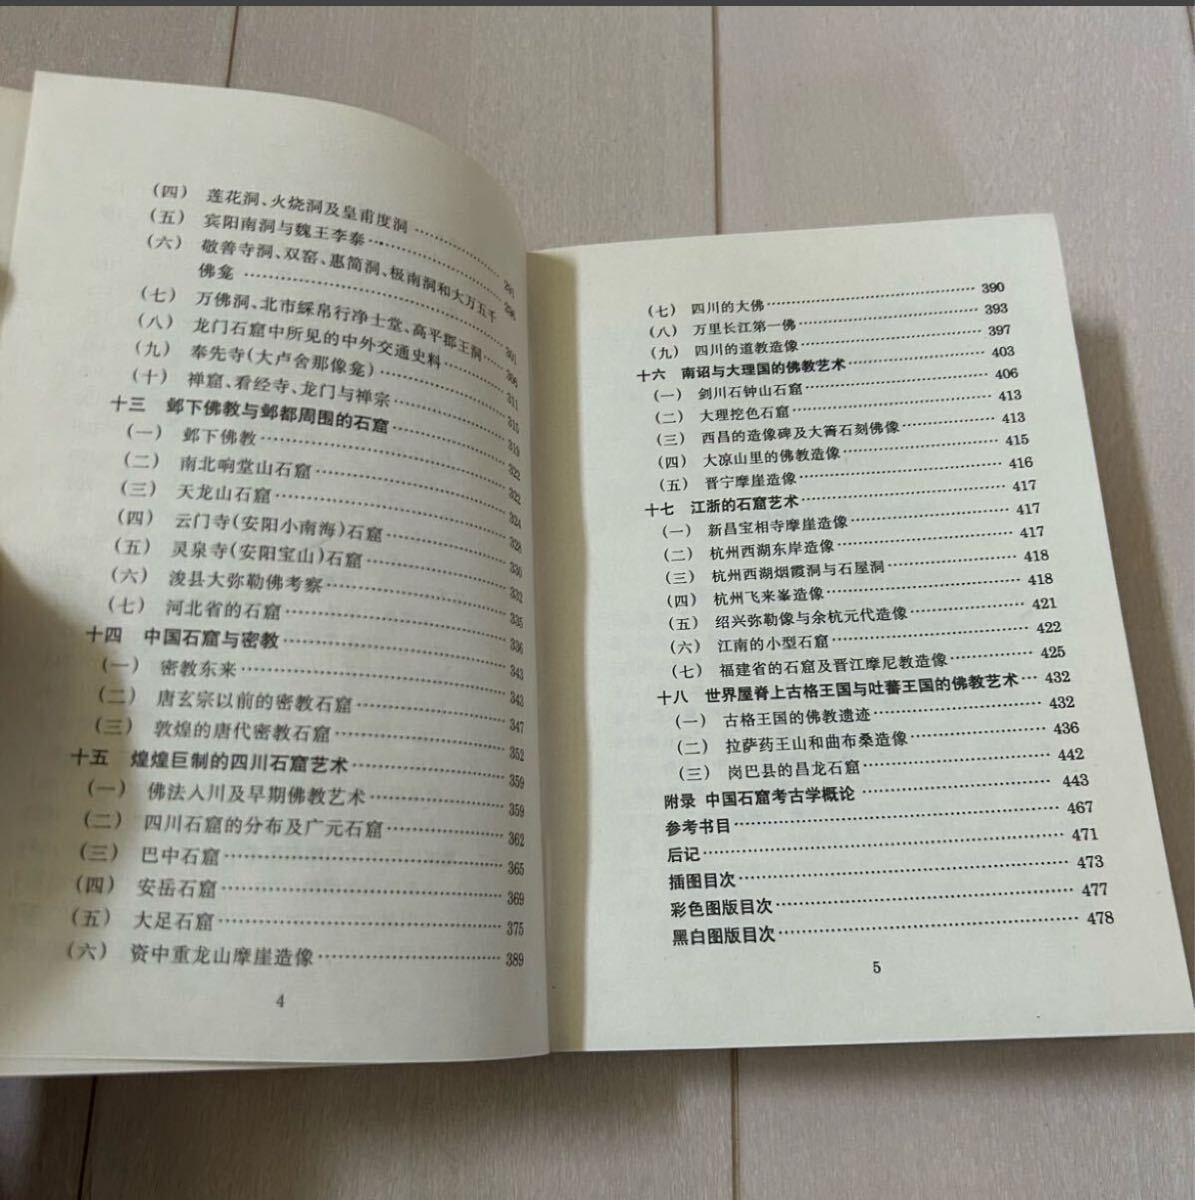 (四) 莲花洞、火烧洞及皇甫度洞 …… 291
(五) 宾阳南洞与魏王李泰 …… 298
(六) 敬善寺洞、双窑、惠简洞、极南洞和大万五千
佛龛 …… 301
(七) 万佛洞、北市綵帛行净土堂、高平郡王洞 …… 306
(八) 龙门石窟中所见的中外交通史料 …… 311
(九) 奉先寺(大卢舍那像龛) …… 315
(十) 禅窟、看经寺、龙门与禅宗 …… 319
十三 邺下佛教与邺都周围的石窟 …… 322
(一) 邺下佛教 …… 322
(二) 南北响堂山石窟 …… 324
(三) 天龙山石窟 …… 328
(四) 云门寺(安阳小南海)石窟 …… 330
(五) 灵泉寺(安阳宝山)石窟 …… 332
(六) 浚县大弥勒佛考察 …… 335
(七) 河北省的石窟 …… 336
十四 中国石窟与密教 …… 343
(一) 密教东来 …… 343
(二) 唐玄宗以前的密教石窟 …… 347
(三) 敦煌的唐代密教石窟 …… 352
十五 煌煌巨制的四川石窟艺术 …… 359
(一) 佛法入川及早期佛教艺术 …… 359
(二) 四川石窟的分布及广元石窟 …… 362
(三) 巴中石窟 …… 365
(四) 安岳石窟 …… 369
(五) 大足石窟 …… 375
(六) 资中重龙山摩崖造像 …… 389
4
(七) 四川的大佛 …… 390
(八) 万里长江第一佛 …… 393
(九) 四川的道教造像 …… 397
十六 南诏与大理国的佛教艺术 …… 403
(一) 剑川石钟山石窟 …… 406
(二) 大理挖色石窟 …… 413
(三) 西昌的造像碑及大箐石刻佛像 …… 413
(四) 大凉山里的佛教造像 …… 415
(五) 晋宁摩崖造像 …… 416
十七 江浙的石窟艺术 …… 417
(一) 新昌宝相寺摩崖造像 …… 417
(二) 杭州西湖东岸造像 …… 417
(三) 杭州西湖烟霞洞与石屋洞 …… 418
(四) 杭州飞来峯造像 …… 418
(五) 绍兴弥勒像与余杭元代造像 …… 421
(六) 江南的小型石窟 …… 422
(七) 福建省的石窟及晋江摩尼教造像 …… 425
十八 世界屋脊上古格王国与吐蕃王国的佛教艺术 … 432
(一) 古格王国的佛教遗迹 …… 432
(二) 拉萨药王山和曲布桑造像 …… 436
(三) 岗巴县的昌龙石窟 …… 442
附录 中国石窟考古学概论 …… 443
参考书目 …… 467
后记 …… 471
插图目次 …… 473
彩色图版目次 …… 477
黑白图版目次 …… 478
5